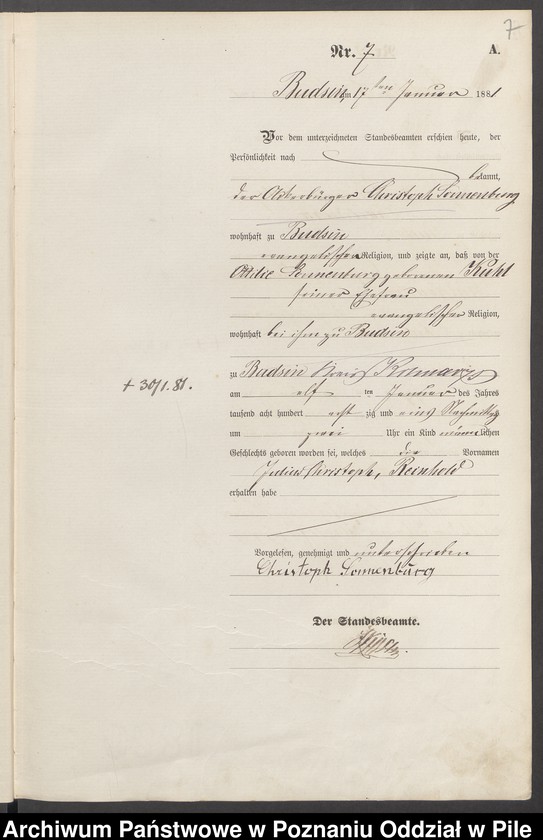 7
Nr. 7 A.
Budsin, am 17ten Januar 1881
Vor dem unterzeichneten Standesbeamten erschien heute, der
Persönlichkeit nach
bekannt,
der Ackerbürger Christoph Sonnenburg
wohnhaft zu Budsin
evangelischer Religion, und zeigte an, daß von der
Sonnenburg geborenen Kuhl
seiner Ehefrau
evangelischer Religion,
wohnhaft bei ihm zu Budsin
zu Budsin Kreis
+ 30/1.81.
am elf ten Januar des Jahres
tausend acht hundert acht zig und eins Nachmittags
um zwei Uhr ein Kind männlichen
Geschlechts geboren worden sei, welches die Vornamen
Julius Christoph, Reinhold
erhalten habe
Vorgelesen, genehmigt und unterschrieben
Christoph Sonnenburg
Der Standesbeamte.
Archiwum Państwowe w Poznaniu Oddział w Pile